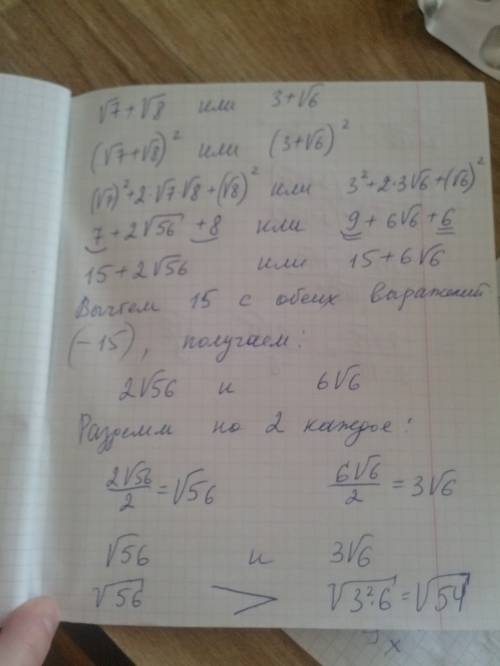 √7+√8 или 3+√6
(√7+√8)² или (3+√6)²
(√7)²+2·√7·√8+(√8)² или 3²+2·3√6+(√6)²
7+2√56+8 или 9+6√6+6
15+2√56 или 15+6√6
Вычтем 15 с обеих выражений
(-15), получаем:
2√56 и 6√6
Разделим на 2 каждое:
2√56/2=√56 6√6/2=3√6
√56 и 3√6
√56 > √3²·6=√54
x